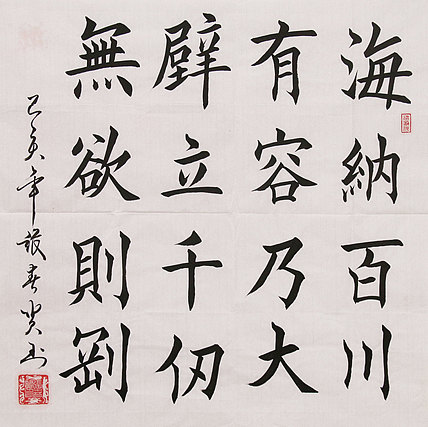 海納百川
有容乃大
壁立千仞
無欲則剛
己亥年